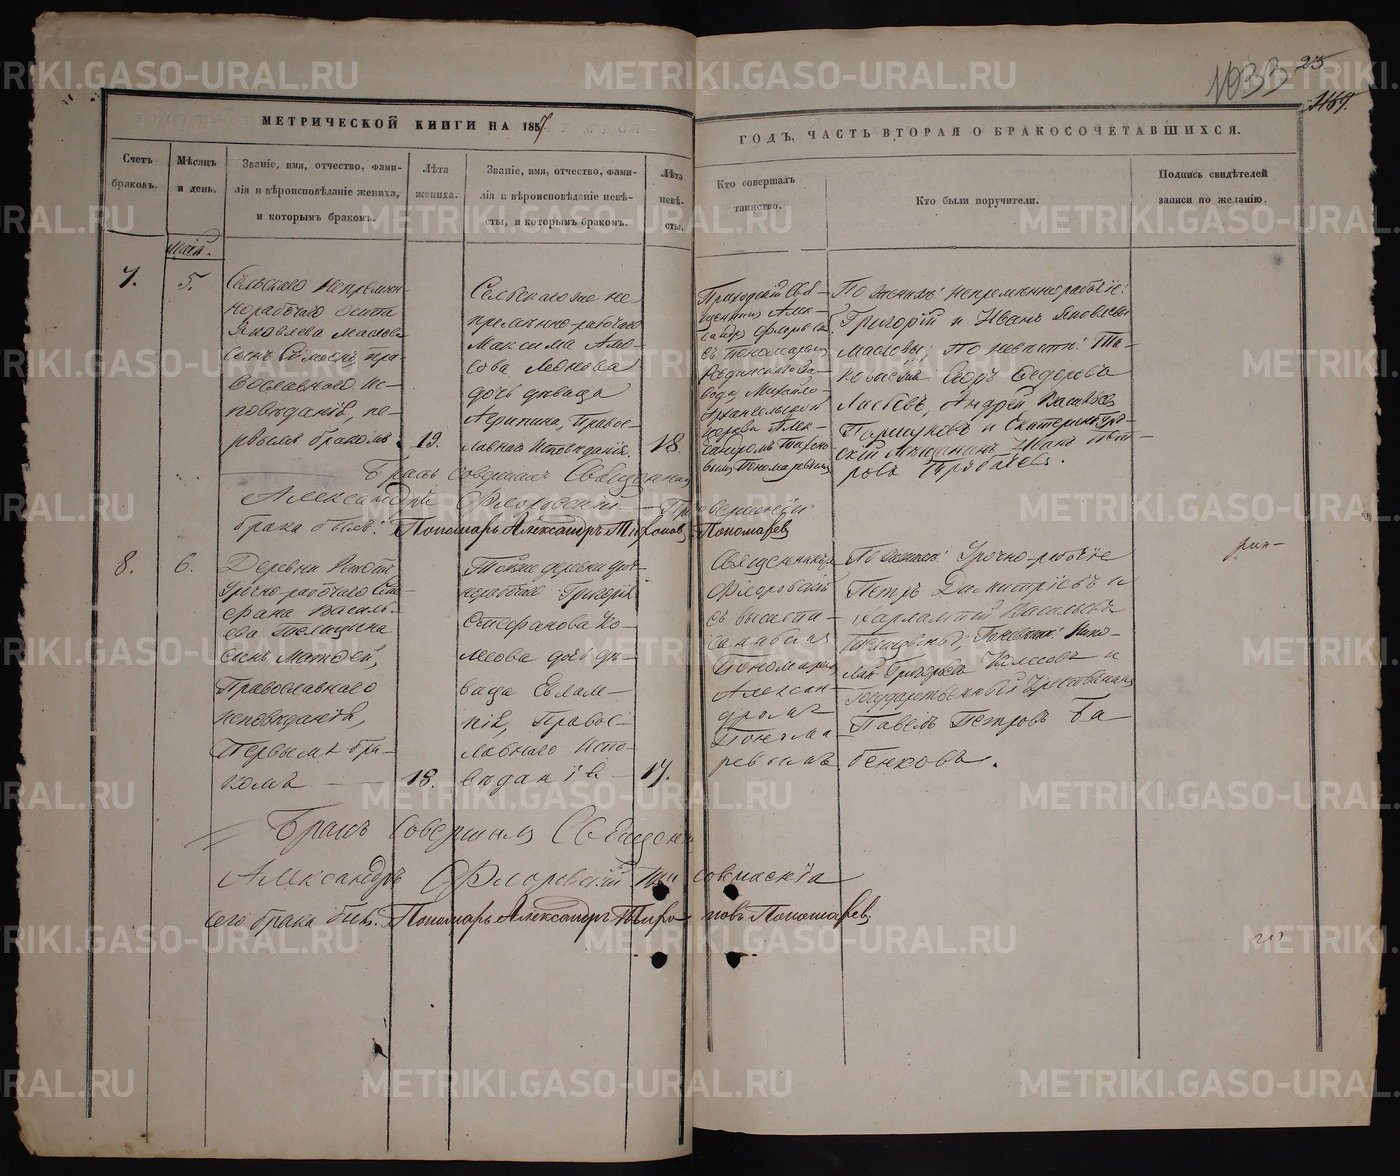 1033 25
МЕТРИЧЕСКОЙ КНИГИ НА 1857
ГОДЪ, ЧАСТЬ ВТОРАЯ О БРАКОСОЧЕТАВШИХСЯ.
Счетъ
браковъ.
Мѣсяцъ
и день.
Званіе, имя, отчество, фами-
лія и вѣроисповѣданіе жениха,
и которымъ бракомъ.
Лѣта
жениха.
Званіе, имя, отчество, фами-
лія и вѣроисповѣданіе невѣ-
сты, и которымъ бракомъ.
Лѣта
невѣ-
сты.
Кто совершалъ
таинство.
Кто были поручители.
Подпись свидѣтелей
записи по желанію
7.
5.
Сельскаго непремѣн-
норабочаго
Яковлева Маслова
сынъ Симеонъ пра-
вославнаго ис-
повѣданія, пе-
рвымъ бракомъ.
19.
Сельскагоже не
премѣнно-рабочаго
Максима
дочь дѣвица
Агрипина, Правос-
лавнаго Исповѣданія.
18.
Приходскій Свя-
щенникъ Алек-
сандръ Флоровскій
съ пономаремъ
Ревдинскаго за-
вода, Михайло-
Архангельской
церкви Алек-
сандромъ
вымъ Пономаревымъ
По женихѣ: непремѣннорабочіе:
Григорій и Иванъ Яковлевы
Масловы; по невѣстѣ: Та-
ковые же Егоръ Федоровъ
Андрей Васильевъ
Паршуковъ и Екатеринбург-
скій Мѣщанинъ Иванъ Пет-
ровъ
Бракъ совершалъ Священникъ
Александръ Флоровскій При совершеніи
брака былъ: Пономарь Александръ Мироновъ Пономаревъ
8.
6.
Деревни
Урочно-рабочаго Сте-
фана Василь-
ева
сынъ Матвей,
Православнаго
исповѣданія,
Первымъ бра-
комъ
18.
Тойже деревни уроч-
норабочаго Григорія
Стефанова Ко-
лесова дочь дѣ-
вица Евлам-
пія, Правос-
лавнаго испо-
вѣданія
17.
Священникъ
Флоровскій
Пономаремъ
Алексан-
дромъ
Понома-
ревымъ
По женихѣ: Урочно-рабочіе
Петръ Димитріевъ и
Харлампій Васильевъ
По невѣстѣ: Нико-
лай Григорьевъ Колесовъ и
Государственный Крестьянинъ
Павелъ Петровъ Ба-
бенковъ.
Бракъ совершалъ Священникъ
Александръ Флоровскій При
сего брака былъ: Пономарь Александръ Мироновъ Пономаревъ
METRIKI.GASO-URAL.RU